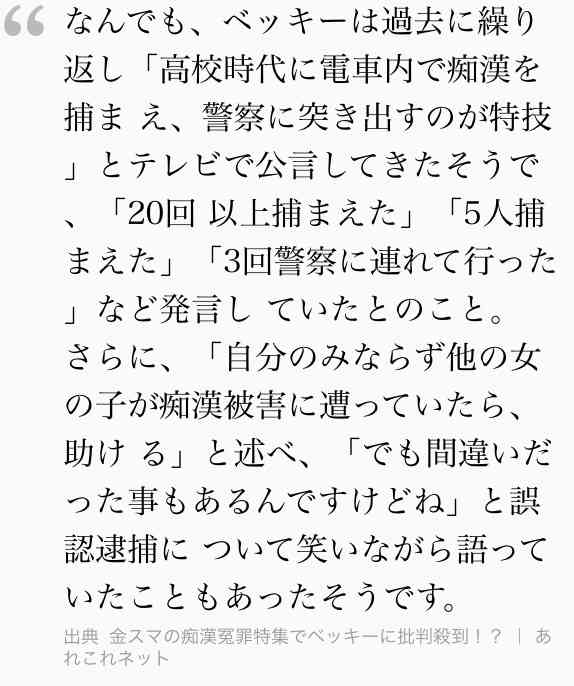 “
なんでも、ベッキーは過去に繰り
返し「高校時代に電車内で痴漢を
捕ま え、警察に突き出すのが特技
」とテレビで公言してきたそうで
、「20回 以上捕まえた」「5人捕
まえた」「3回警察に連れて行った
」など発言し ていたとのこと。
さらに、「自分のみならず他の女
の子が痴漢被害に遭っていたら、
助け る」と述べ、「でも間違いだ
った事もあるんですけどね」と誤
認逮捕に ついて笑いながら語って
いたこともあったそうです。
出典 金スマの痴漢冤罪特集でベッキーに批判殺到！？ ｜ あ
れこれネット